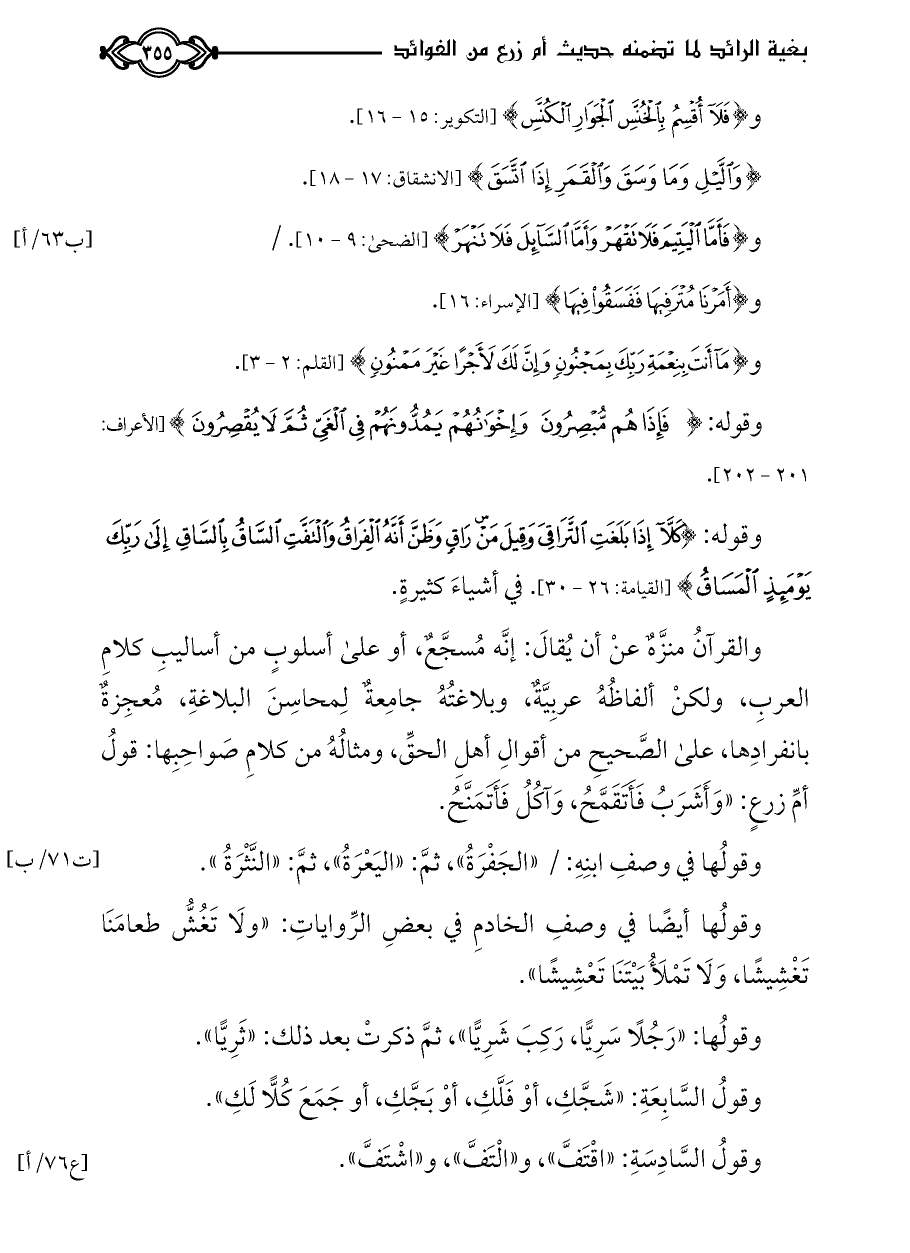 بغية الرائد لما تضمنه حديث أم زرع من الفوائد ٣٥٥
و﴿فَلَآ أُقۡسِمُ بِٱلۡخُنَّسِ ٱلۡجَوَارِ ٱلۡكُنَّسِ﴾ [التكوير: ١٥ - ١٦].
﴿وَٱلَّيۡلِ وَمَا وَسَقَ وَٱلۡقَمَرِ إِذَا ٱتَّسَقَ﴾ [الانشقاق: ١٧ - ١٨].
و﴿فَأَمَّا ٱلۡيَتِيمَ فَلَا تَقۡهَرۡ وَأَمَّا ٱلسَّآئِلَ فَلَا تَنۡهَرۡ﴾ [الضحىٰ: ٩ - ١٠]. / [ب٦٣/ أ]
و﴿أَمَرۡنَا مُتۡرَفِيهَا فَفَسَقُواْ فِيهَا﴾ [الإسراء: ١٦].
و﴿مَآ أَنتَ بِنِعۡمَةِ رَبِّكَ بِمَجۡنُونٍ وَإِنَّ لَكَ لَأَجۡرًا غَيۡرَ مَمۡنُونٍ﴾ [القلم: ٢ - ٣].
وقوله: ﴿فَإِذَا هُم مُّبۡصِرُونَ وَإِخۡوَٰنُهُمۡ يَمُدُّونَهُمۡ فِي ٱلۡغَيِّ ثُمَّ لَا يُقۡصِرُونَ﴾ [الأعراف:
٢٠١ - ٢٠٢].
وقوله: ﴿كَلَّآ إِذَا بَلَغَتِ ٱلتَّرَاقِيَ وَقِيلَ مَنۡۜ رَاقٍ وَظَنَّ أَنَّهُ ٱلۡفِرَاقُ وَٱلۡتَفَّتِ ٱلسَّاقُ بِٱلسَّاقِ إِلَىٰ رَبِّكَ
يَوۡمَئِذٍ ٱلۡمَسَاقُ﴾ [القيامة: ٢٦ - ٣٠]. في أشياءَ كثيرةٍ.
والقرآنُ منزَّهٌ عنْ أن يُقالَ: إنَّه مُسجَّعٌ، أو علىٰ أسلوبٍ من أساليبِ كلامِ
العربِ، ولكنْ ألفاظُهُ عربيَّةٌ، وبلاغتُهُ جامِعةٌ لِمحاسِنَ البلاغةِ، مُعجِزةٌ
بانفرادِها، علىٰ الصَّحيحِ من أقوالِ أهلِ الحقِّ، ومثالُهُ من كلامِ صَواحِبِها: قولُ
أمِّ زرعٍ: «وَأَشَرَبُ فَأَتَقَمَّحُ، وَآكُلُ فَأَتَمَنَّحُ.
وقولُها في وصفِ ابنِهِ: / «الجَفْرَةُ»، ثمَّ: «اليَعْرَةُ»، ثمَّ: «النَّثْرَةُ». [ت٧١/ ب]
وقولُها أيضًا في وصفِ الخادمِ في بعضِ الرِّواياتِ: «ولَا تَغُشُّ طعامَنَا
تَغْشِيشًا، وَلَا تَمْلَأُ بَيْتَنَا تَعْشِيشًا».
وقولُها: «رَجُلًا سَرِيًّا، رَكِبَ شَرِيًّا»، ثمَّ ذكرتْ بعد ذلك: «ثَرِيًّا».
وقولُ السَّابعَةِ: «شَجَّكِ، أوْ فَلَّكِ، أوْ بَجَّكِ، أو جَمَعَ كُلًّا لَكِ».
وقولُ السَّادِسَةِ: «اقْتَفَّ»، و«الْتَفَّ»، و«اشْتَفَّ». [ع٧٦/ أ]